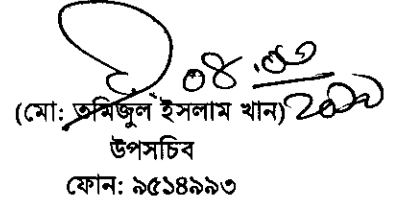 ০৪.০৩
(মো: তমিজুল ইসলাম খান)
উপসচিব
ফোন: ৯৫১৪৯৯৩